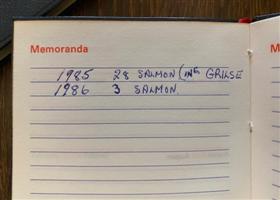 Memoranda
M
1985 28 SALMON (INC GRILSE
1986 3 SALMON